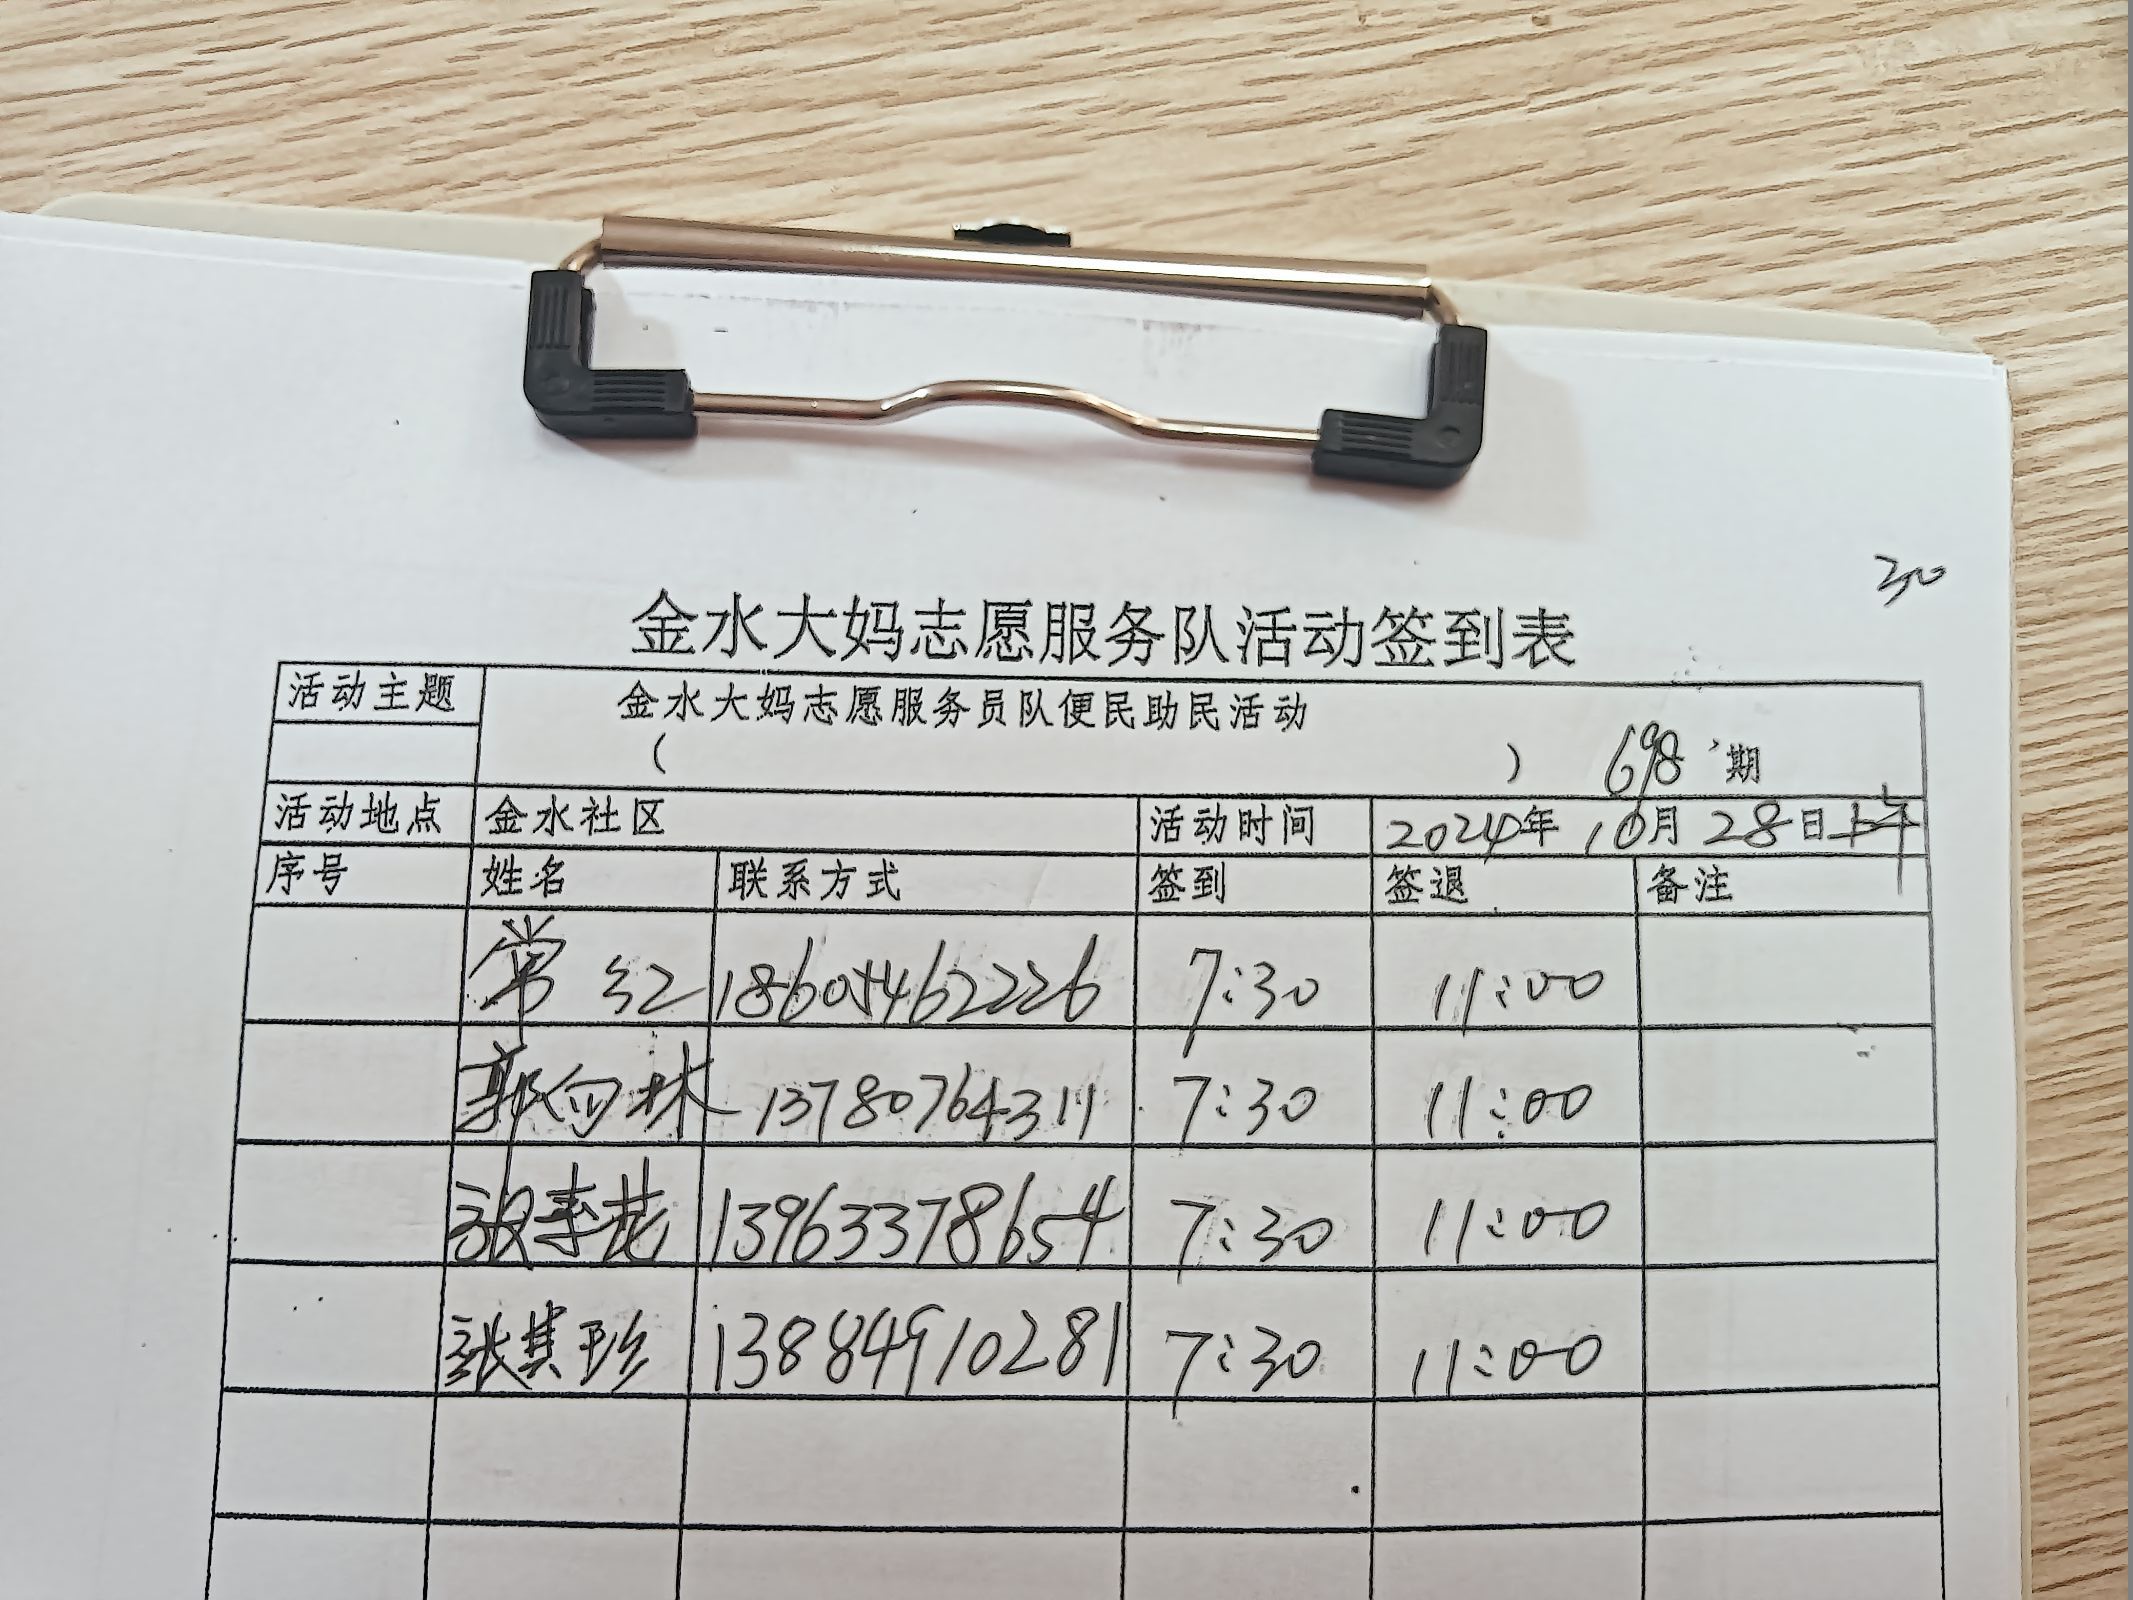 30
金水大妈志愿服务队活动签到表
活动主题 金水大妈志愿服务员队便民助民活动
( ) 698 期
活动地点 金水社区 活动时间 2024年 10月 28日上午
序号 姓名 联系方式 签到 签退 备注
常红 18605462226 7:30 11:00
郭向林 13780764311 7:30 11:00
张季花 13963378654 7:30 11:00
张其珍 13884910281 7:30 11:00